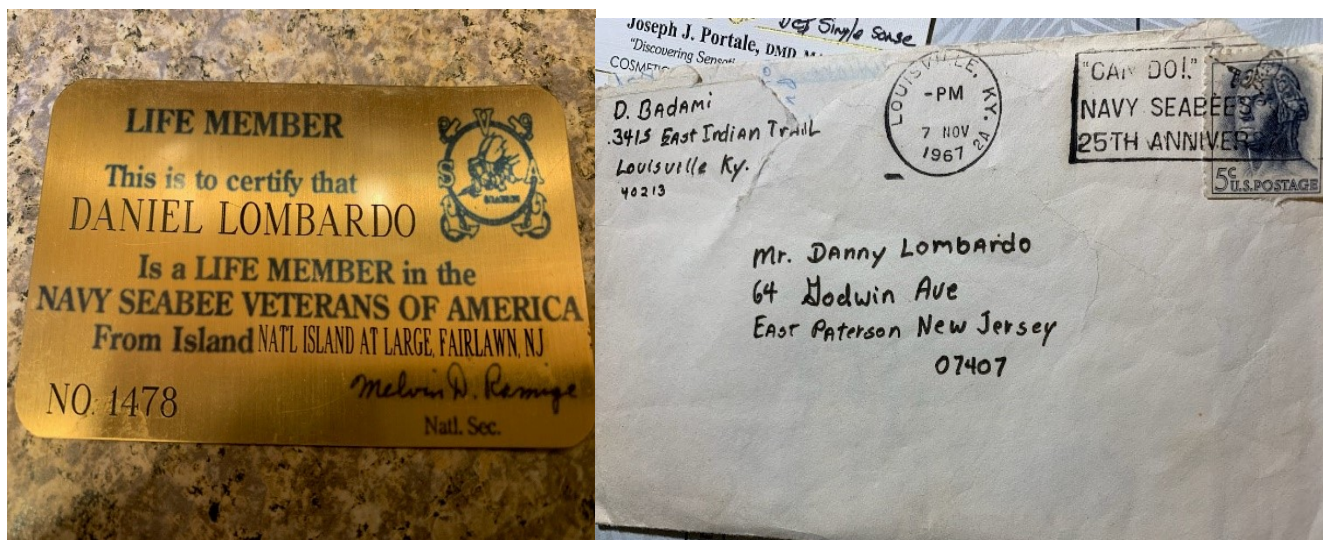 LIFE MEMBER
This is to certify that
DANIEL LOMBARDO
Is a LIFE MEMBER in the
NAVY SEABEE VETERANS OF AMERICA
From Island NAT'L ISLAND AT LARGE, FAIRLAWN, NJ
NO. 1478
Melvin D. Ramige
Natl. Sec.
S V A
Single
Joseph J. Portale, DMD
"Discovering
D. Badami
3415 East Indian Trail
Louisville Ky.
40213
LOUISVILLE, KY.
-PM
7 NOV
1967
2A
"CAN DO!"
NAVY SEABEES
25TH ANNIVER
5c U.S. POSTAGE
Mr. Danny Lombardo
64 Godwin Ave
East Paterson New Jersey
07407